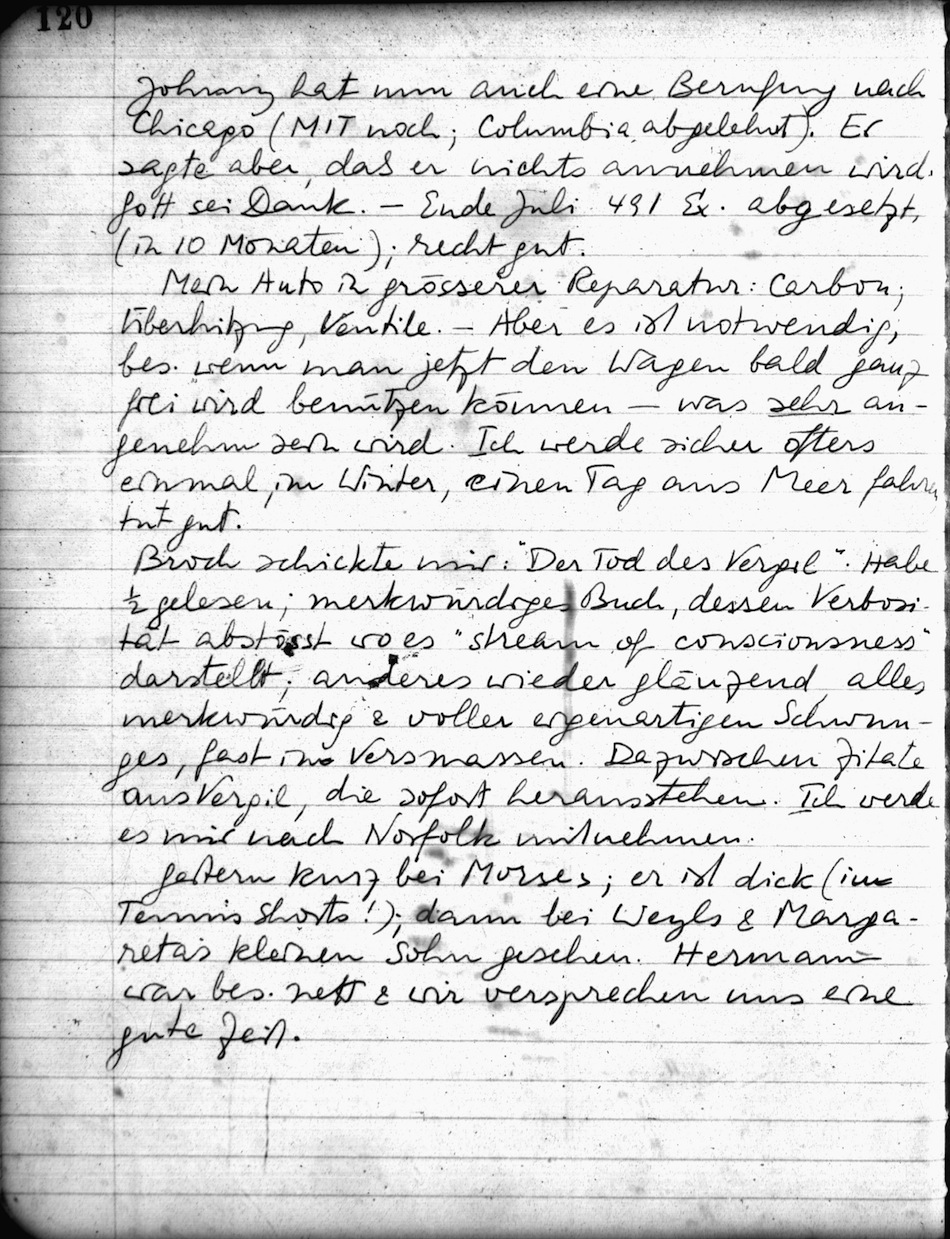 120
Johnny hat nun auch eine Berufung nach
Chicago (MIT noch; Columbia abgelehnt). Er
sagte aber, das er nichts annehmen wird.
Gott sei Dank. — Ende Juli 491 Ex. abgesetzt,
(in 10 Monaten); recht gut.
Mein Auto in grösserer Reparatur: Carbon;
Überhitzung, Ventile. — Aber es ist notwendig,
bes. wenn man jetzt den Wagen bald ganz
frei wird benützen können — was sehr an-
genehm sein wird. Ich werde sicher öfters
einmal, im Winter, einen Tag ans Meer fahren
tut gut.
Broch schickte mir: "Der Tod des Vergil". Habe
½ gelesen; merkwürdiges Buch, dessen Verbosi-
tät abstösst wo es "stream of consciousness"
darstellt; anderes wieder glänzend, alles
merkwürdig & voller eigenartigen Schwun-
ges, fast in Versmassen. Dazwischen Zitate
aus Vergil, die sofort herausstehen. Ich werde
es mir nach Norfolk mitnehmen.
Gestern kurz bei Morses; er ist dick (im
Tennis Shorts!); dann bei Weyls & Marga-
retas kleinen Sohn gesehen. Hermann
war bes. nett & wir versprechen uns eine
gute Zeit.